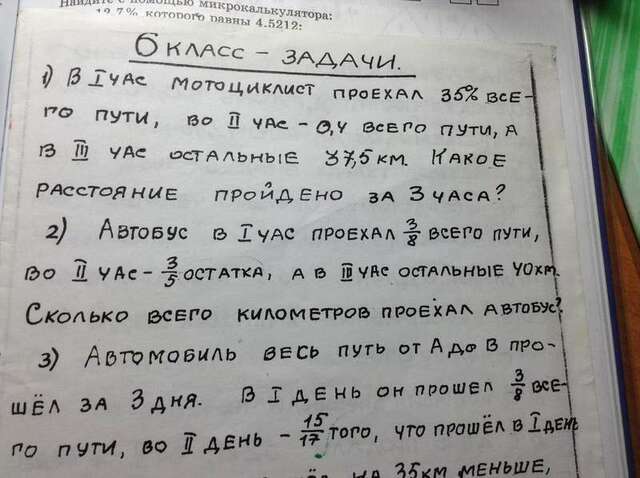 Найдите с помощью микрокалькулятора:
которого равны 4.5212:
6 КЛАСС - ЗАДАЧИ.
1) В I ЧАС МОТОЦИКЛИСТ ПРОЕХАЛ 35% ВСЕ-
ГО ПУТИ, ВО II ЧАС - 0,4 ВСЕГО ПУТИ, А
В III ЧАС ОСТАЛЬНЫЕ 37,5 КМ. КАКОЕ
РАССТОЯНИЕ ПРОЙДЕНО ЗА 3 ЧАСА?
2) АВТОБУС В I ЧАС ПРОЕХАЛ 3/8 ВСЕГО ПУТИ,
ВО II ЧАС - 3/5 ОСТАТКА, А В III ЧАС ОСТАЛЬНЫЕ 40КМ.
СКОЛЬКО ВСЕГО КИЛОМЕТРОВ ПРОЕХАЛ АВТОБУС?
3) АВТОМОБИЛЬ ВЕСЬ ПУТЬ ОТ А ДО В ПРО-
ШЁЛ ЗА 3 ДНЯ. В I ДЕНЬ ОН ПРОШЕЛ 3/8 ВСЕ-
ГО ПУТИ, ВО II ДЕНЬ - 15/17 ТОГО, ЧТО ПРОШЁЛ В I ДЕНЬ
НА 35КМ МЕНЬШЕ,